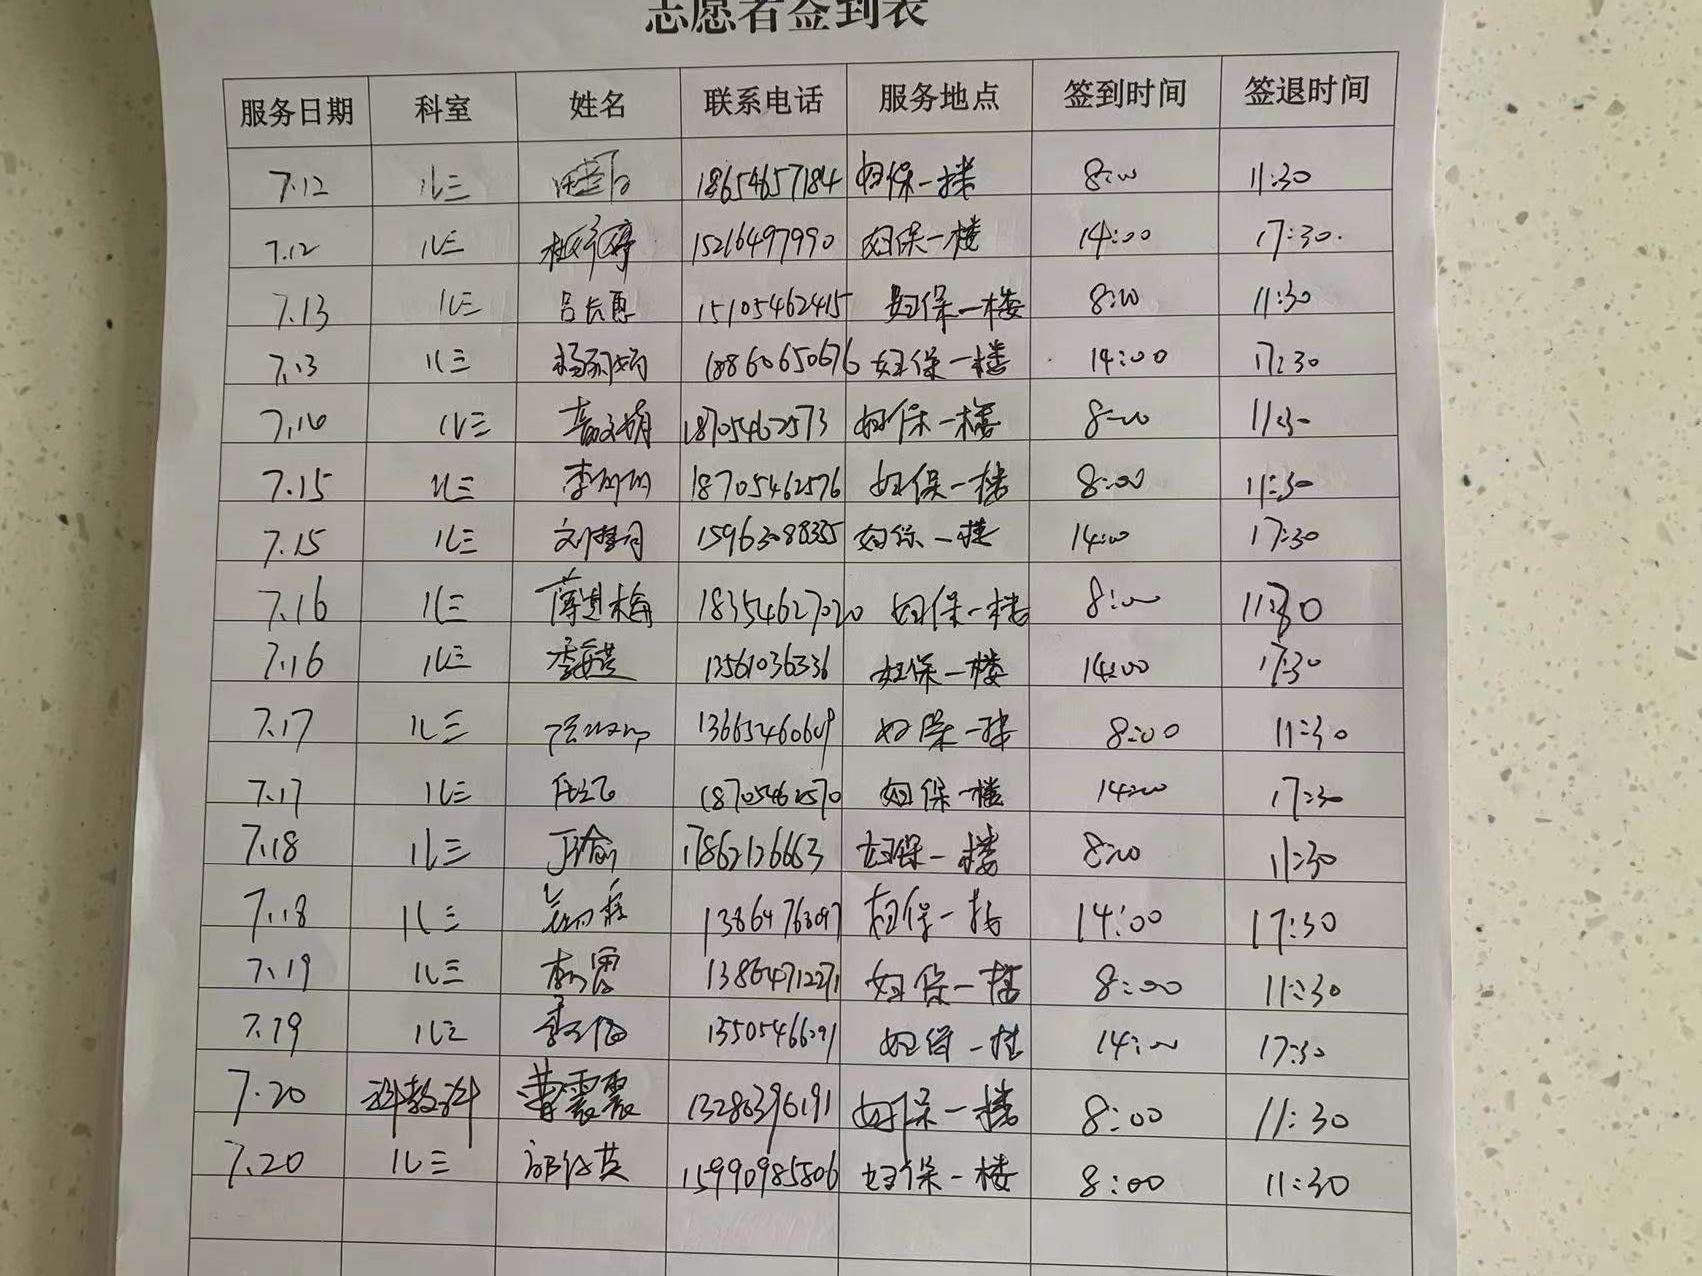 志愿者签到表
服务日期 科室 姓名 联系电话 服务地点 签到时间 签退时间
7.12 儿三 18654657184 妇保一楼 8:00 11:30
7.12 儿三 15216497990 妇保一楼 14:00 17:30.
7.13 儿三 吕长惠 15105462415 妇保一楼 8:00 11:30
7.13 儿三 18860650676 妇保一楼 14:00 17:30
7.14 儿三 18705462573 妇保一楼 8:00 11:30
7.15 儿三 李明明 18705462576 妇保一楼 8:00 11:30
7.15 儿三 15963088355 妇保一楼 14:00 17:30
7.16 儿三 薄进梅 18354627020 妇保一楼 8:00 11:30
7.16 儿三 13561036336 妇保一楼 14:00 17:30
7.17 儿三 13665460609 妇保一楼 8:00 11:30
7.17 儿三 18705462570 妇保一楼 14:00 17:30
7.18 儿三 17862126663 妇保一楼 8:00 11:30
7.18 儿三 妇保一楼 14:00 17:30
7.19 儿三 13864712271 妇保一楼 8:00 11:30
7.19 儿三 13505466091 妇保一楼 14:00 17:30
7.20 科教科 曹震震 13280396191 妇保一楼 8:00 11:30
7.20 儿三 郭红英 15990985806 妇保一楼 8:00 11:30